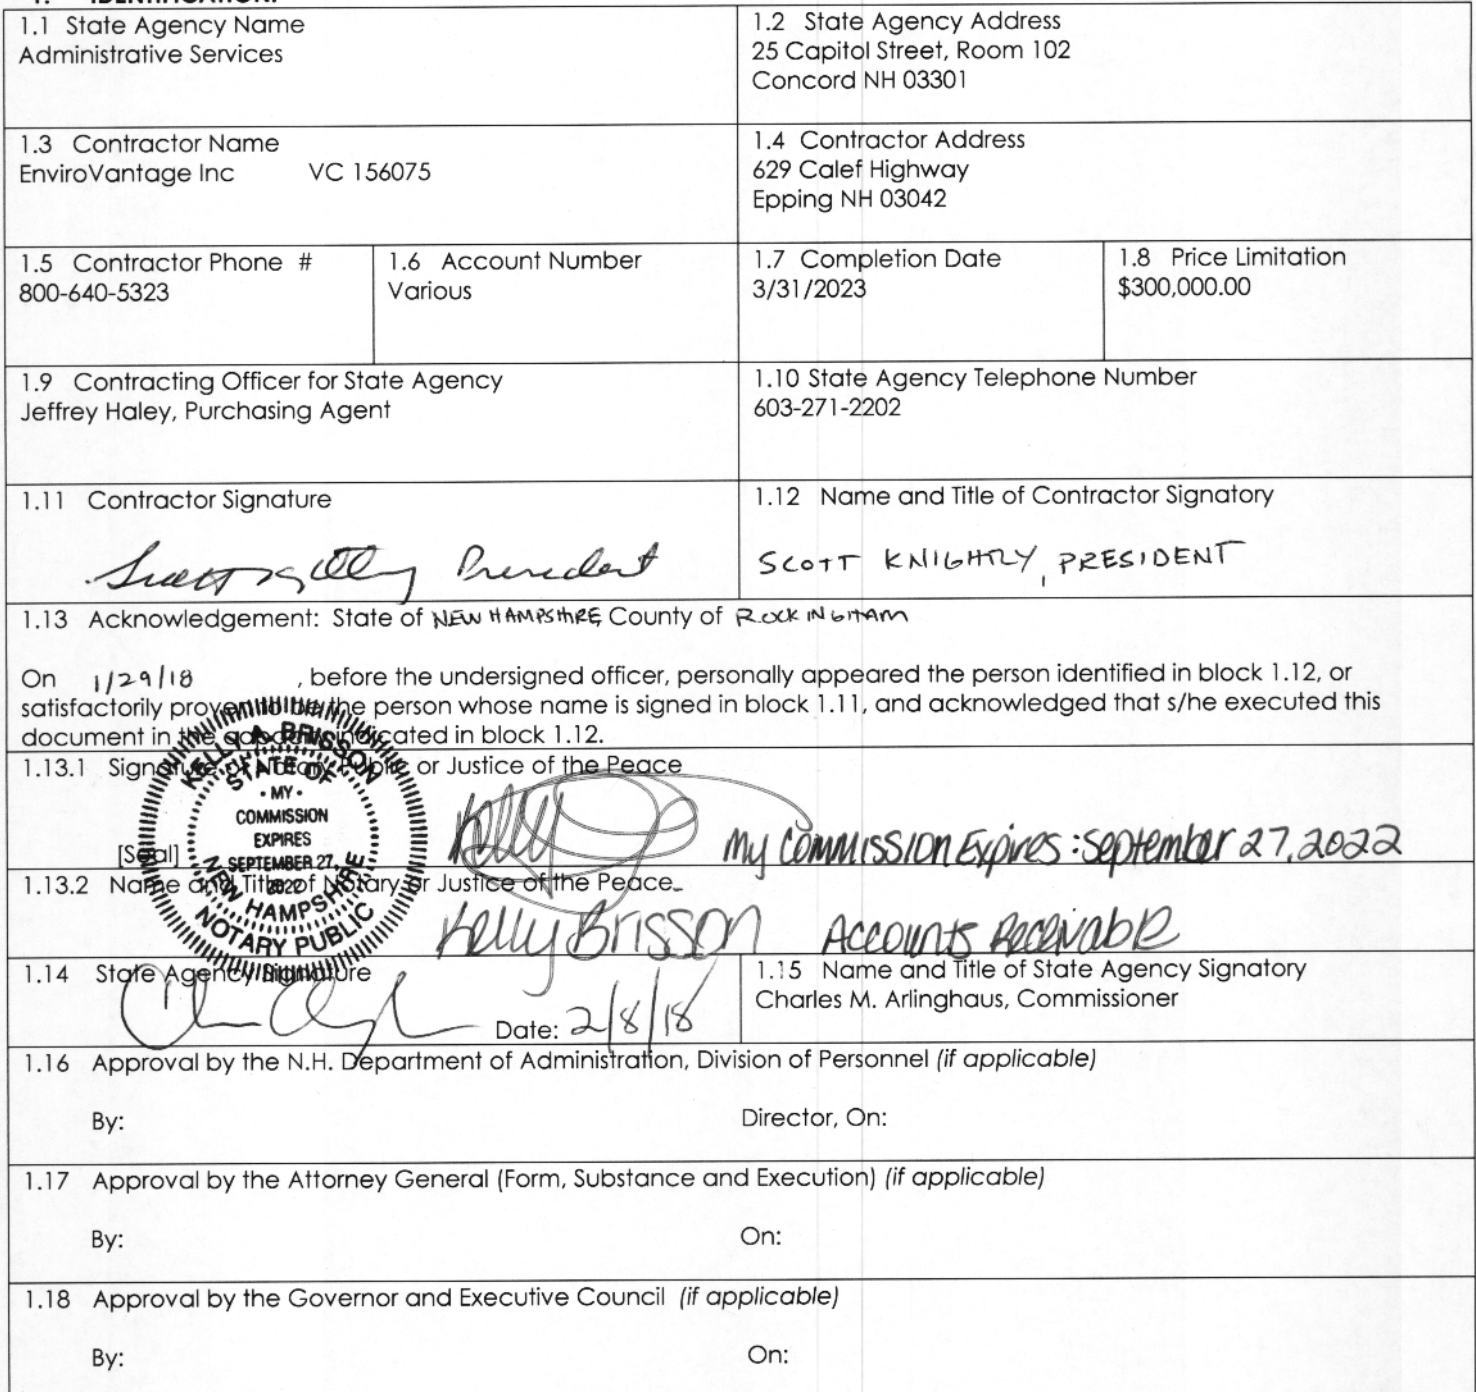 1. IDENTIFICATION.
1.1 State Agency Name
Administrative Services
1.2 State Agency Address
25 Capitol Street, Room 102
Concord NH 03301
1.3 Contractor Name
EnviroVantage Inc VC 156075
1.4 Contractor Address
629 Calef Highway
Epping NH 03042
1.5 Contractor Phone #
800-640-5323
1.6 Account Number
Various
1.7 Completion Date
3/31/2023
1.8 Price Limitation
$300,000.00
1.9 Contracting Officer for State Agency
Jeffrey Haley, Purchasing Agent
1.10 State Agency Telephone Number
603-271-2202
1.11 Contractor Signature
President
1.12 Name and Title of Contractor Signatory
SCOTT KNIGHTLY, PRESIDENT
1.13 Acknowledgement: State of NEW HAMPSHIRE County of ROCKINGHAM
On 1/29/18 , before the undersigned officer, personally appeared the person identified in block 1.12, or
satisfactorily proven to be the person whose name is signed in block 1.11, and acknowledged that s/he executed this
document in the capacity indicated in block 1.12.
1.13.1 Signature of Notary Public or Justice of the Peace
KELLY A. BRISSON
STATE OF
• MY •
COMMISSION
EXPIRES
SEPTEMBER 27,
2022
NEW HAMPSHIRE
NOTARY PUBLIC
[Seal]
My Commission Expires: September 27, 2022
1.13.2 Name and Title of Notary or Justice of the Peace
Kelly Brisson Accounts Receivable
1.14 State Agency Signature
Date: 2/8/18
1.15 Name and Title of State Agency Signatory
Charles M. Arlinghaus, Commissioner
1.16 Approval by the N.H. Department of Administration, Division of Personnel (if applicable)
By: Director, On:
1.17 Approval by the Attorney General (Form, Substance and Execution) (if applicable)
By: On:
1.18 Approval by the Governor and Executive Council (if applicable)
By: On: